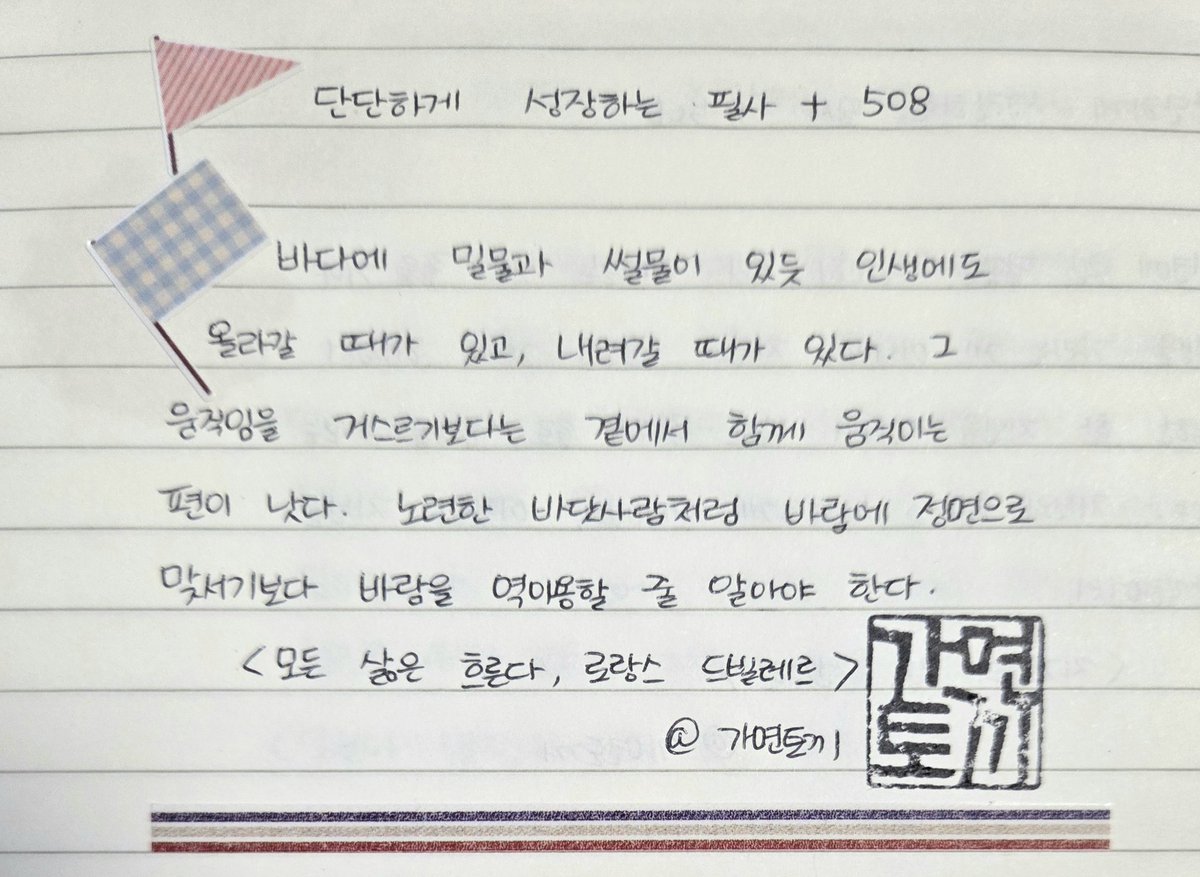 단단하게 성장하는 필사 + 508
바다에 밀물과 썰물이 있듯 인생에도
올라갈 때가 있고, 내려갈 때가 있다. 그
움직임을 거스르기보다는 곁에서 함께 움직이는
편이 낫다. 노련한 바닷사람처럼 바람에 정면으로
맞서기보다 바람을 역이용할 줄 알아야 한다.
<모든 삶은 흐른다, 로랑스 드빌레르>
@ 가면토끼
가면
토끼